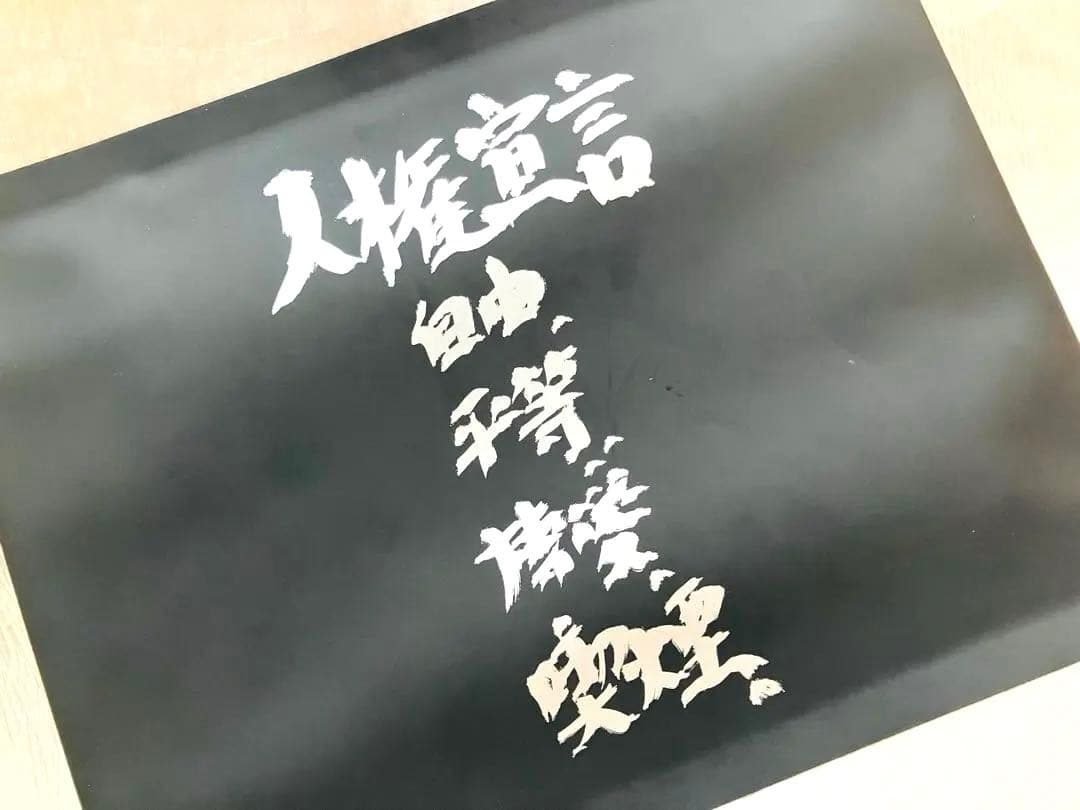 人権宣言
自由、
平等、
博愛、
喫煙。